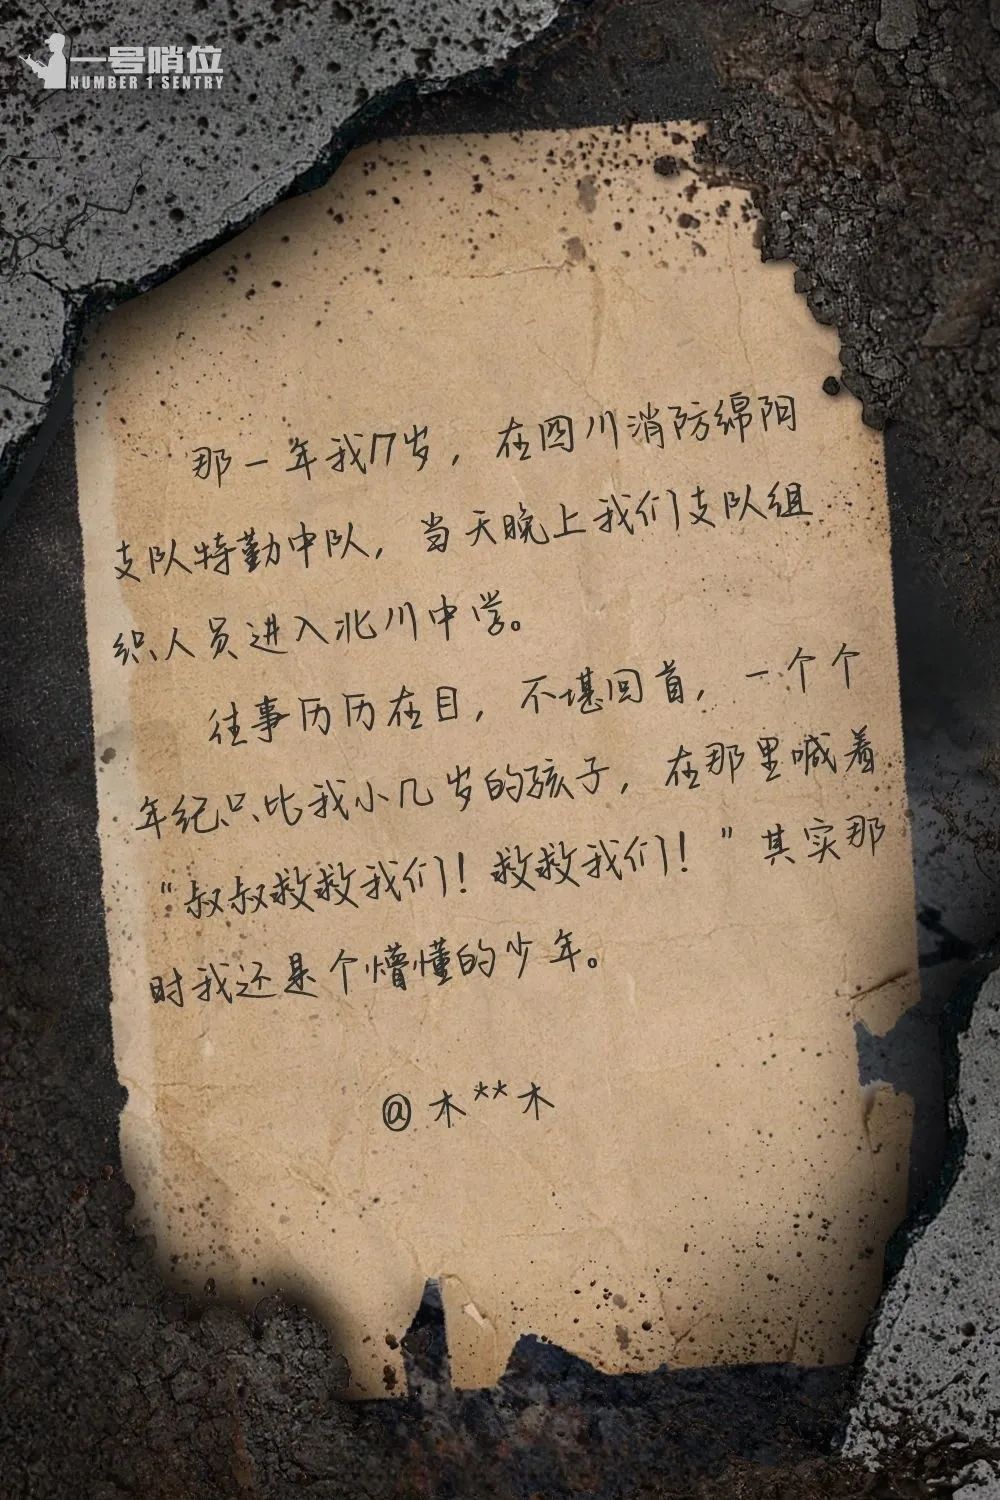 一号哨位
NUMBER 1 SENTRY
那一年我17岁，在四川消防绵阳
支队特勤中队，当天晚上我们支队组
织人员进入北川中学。
往事历历在目，不堪回首，一个个
年纪只比我小几岁的孩子，在那里喊着
“叔叔救救我们！救救我们！”其实那
时我还是个懵懂的少年。
@木**木